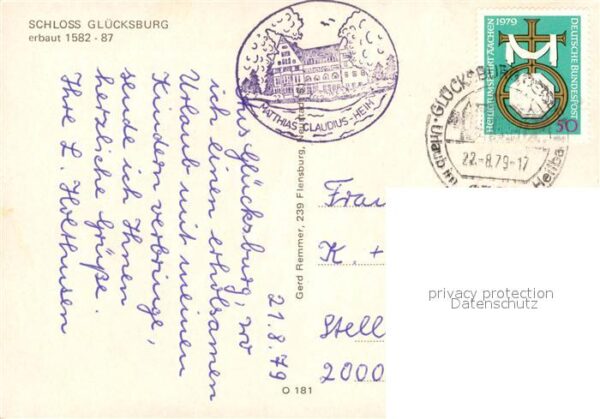 SCHLOSS GLÜCKSBURG
erbaut 1582 - 87
Aus Glücksburg, wo
ich einen erholsamen
Urlaub mit meinen
Kindern verbringe,
sende ich Ihnen
herzliche Grüße.
Ihre L. Holthusen
21.8.79
MATTHIAS-CLAUDIUS-HEIM
Gerd Remmer, 239 Flensburg,
O 181
1979
HEILIGTUMSFAHRT AACHEN
DEUTSCHE BUNDESPOST
50
GLÜCKSBU
22.-8.79-17
Urlaub
Heilba
Frau
K. +
Stell
2000
privacy protection
Datenschutz